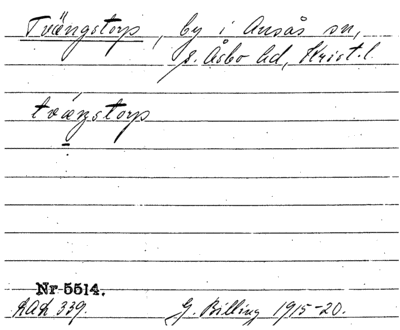 Tvängstorp, by i Ausås sn,
s. Åsbo hd, Krist. l.
tvängstorp
Nr 5514.
RAÄ 339.
G. Billing 1915-20.